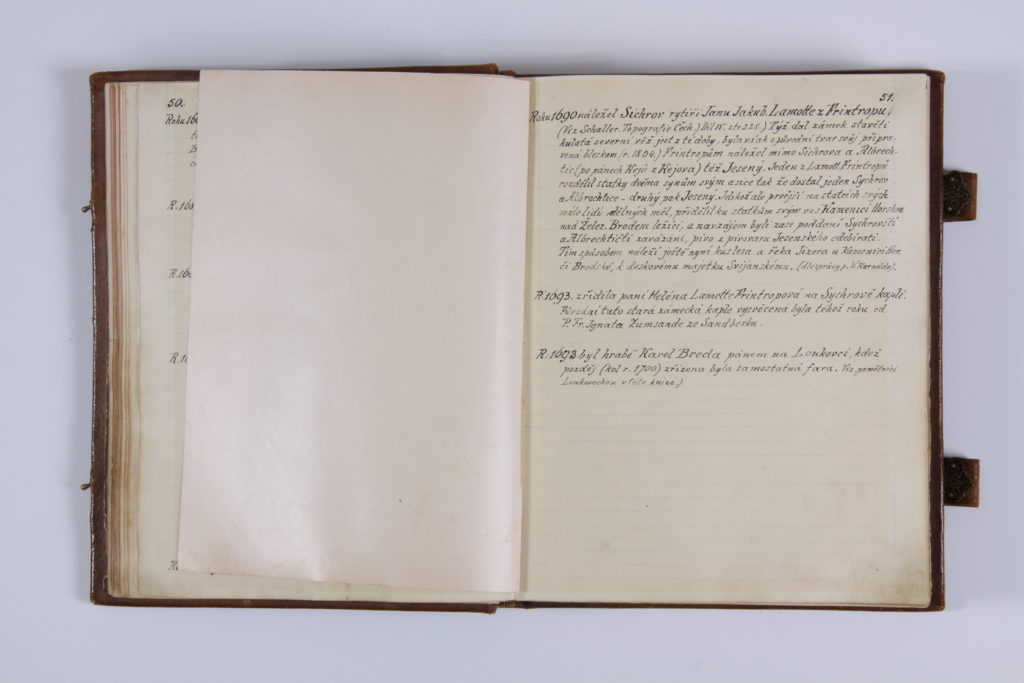 50.
Roku 16
R. 168
R. 16
R. 1
R.
51.
Roku 1690 náležel Sichrov rytíři Janu Jakub. Lamotte z Frintropu
(Viz Schaller. Topografie Čech.) Díl IV. str. 228.) Týž dal zámek stavěti
kulatá severní věž jest z té doby, byla však o původní tvar svůj připra-
vena bleskem (r. 1804.) Frintropům náležel mimo Sichrova a Albrech-
tic (po pánech Kejů z Kejova) též Jesený. Jeden z Lamott Frintropů
rozdělil statky dvěma synům svým a sice tak že dostal jeden Sychrov
a Albrechtice - druhý pak Jesený. Jelikož ale prvější na statcích svých
málo lidí dělných měl, přidělil ku statkům svým ves Kamenici Horskou
nad Želez. Brodem ležící, a navzájem byli zase poddaní Sychrovští
a Albrechtičtí zavázáni, pivo z pivovaru Jesenského odebírati.
Tím způsobem náleží ještě nyní kus lesa a řeka Jizera u Kamenici Hor.
čí Brodské, k deskovému majetku Svijanskému. (dle zprávy p. V.
R. 1693. zřídila paní Heléna Lamotte Frintropová na Sychrově kapli.
Původní tato stará zámecká kaple vysvěcena byla téhož roku od
P. Fr. Ignata Zumsande ze Sandberku.
R. 1693 byl hrabě Karel Breda pánem na Loukovci, kdež
pozděj (kol r. 1700) zřízena byla samostatná fara. Viz pamětnici
Loukoveckou v této knize.)